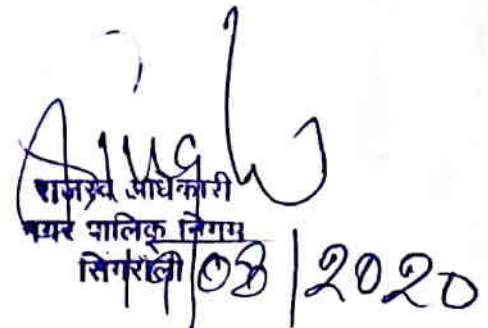 राजस्व अधिकारी
नगर पालिक निगम
सिंगरौली
/03/2020